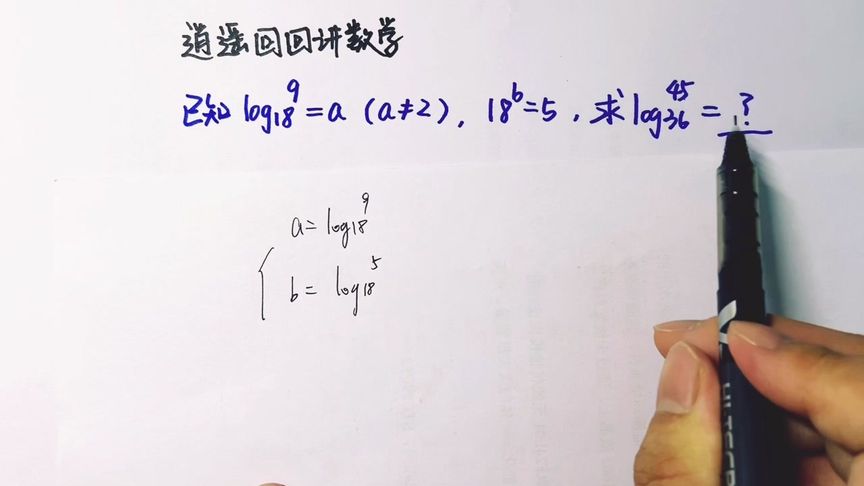 逍遥回回讲数学
已知 log₁₈⁹=a (a≠2), 18ᵇ=5, 求 log₃₆⁴⁵=?
a=log₁₈⁹
b=log₁₈⁵